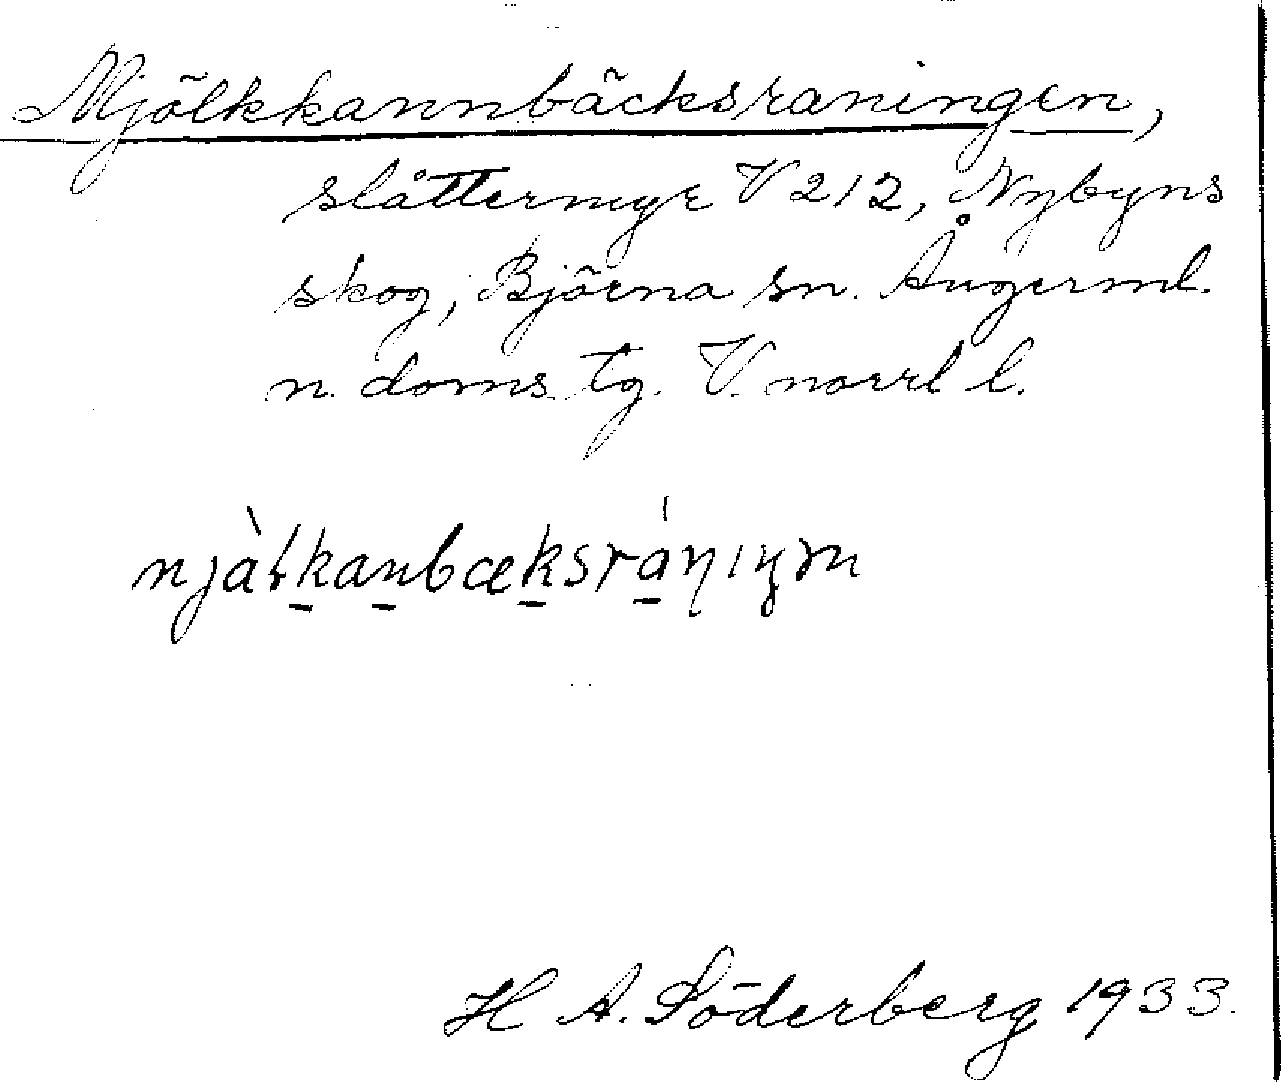 Mjölkkannbäcksraningen,
slåttermyr V 212, Nybyns
skog, Björna sn. Ångerml.
n. doms. tg. V. norrl l.
H A. Söderberg 1933.